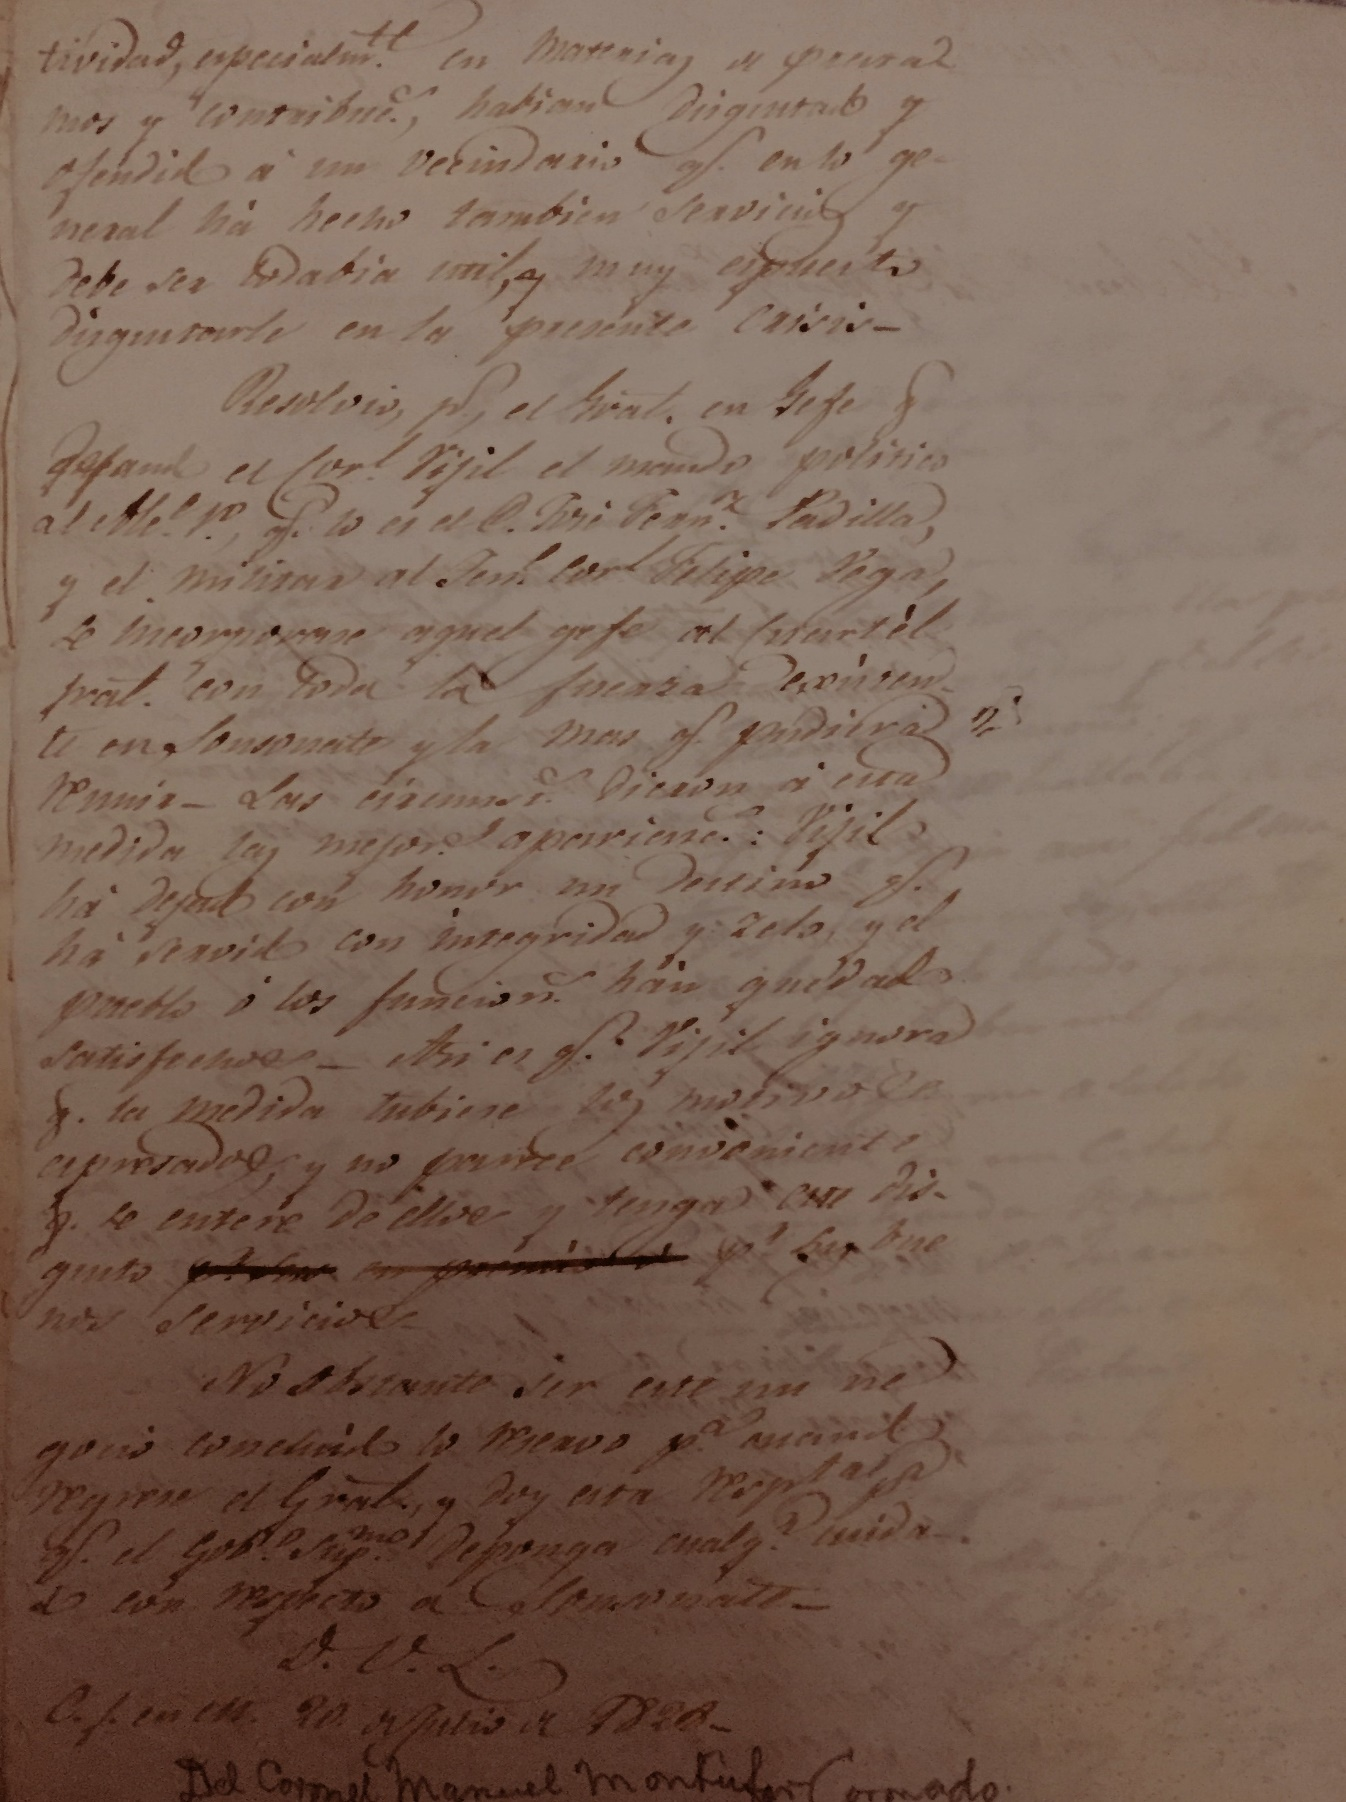 tividad, especialm.te en materias de prestaz
mos y contribuc.s, habian disgustado y
ofendido á un vecindario q.e en lo ge-
neral há hecho tambien servicios y
debe ser todabia util, y muy espuesto
disgustarle en la presente crisis-
Resolvió, p.s, el Gral. en Gefe q
dejando el Cor.l Vijil el mando politico
al Alc.e 1.o, q.e lo es el C. José Fern.z Padilla,
y el militar al Ten.e Cor.l Felipe Vega,
se incorporase aquel gefe al Cuartél
pral. con toda la fuerza existen-
te en Sonsonate y la mas q.e pudiera
reunir- Las circunst.s dieron á esta
medida las mejor.s aparienc.s: Vijil
há dejado con honor un destino q.e
há servido con integridad y zelo, y el
pueblo ó los funcion.s hán quedado
satisfechos- Asi es q.e Vijil ignora
q. la medida tubiese los motivos
espresados, y no parece conveniente
q. se entere de éllos y tenga este dis-
gusto en premio de p.r sus bue
nos servicios-
No obstante ser este un ne
gocio concluido lo reservo p.a cuando
regrese el Gral., y doy esta resp.ta p.a
q.e el Gob.o Sup.mo deponga cualq.r cuida-
do con respecto a Sonsonate-
D. U. L.
C. g. en M. 20. de Julio de 1828-
Del Coronel Manuel Montúfar Coronado.